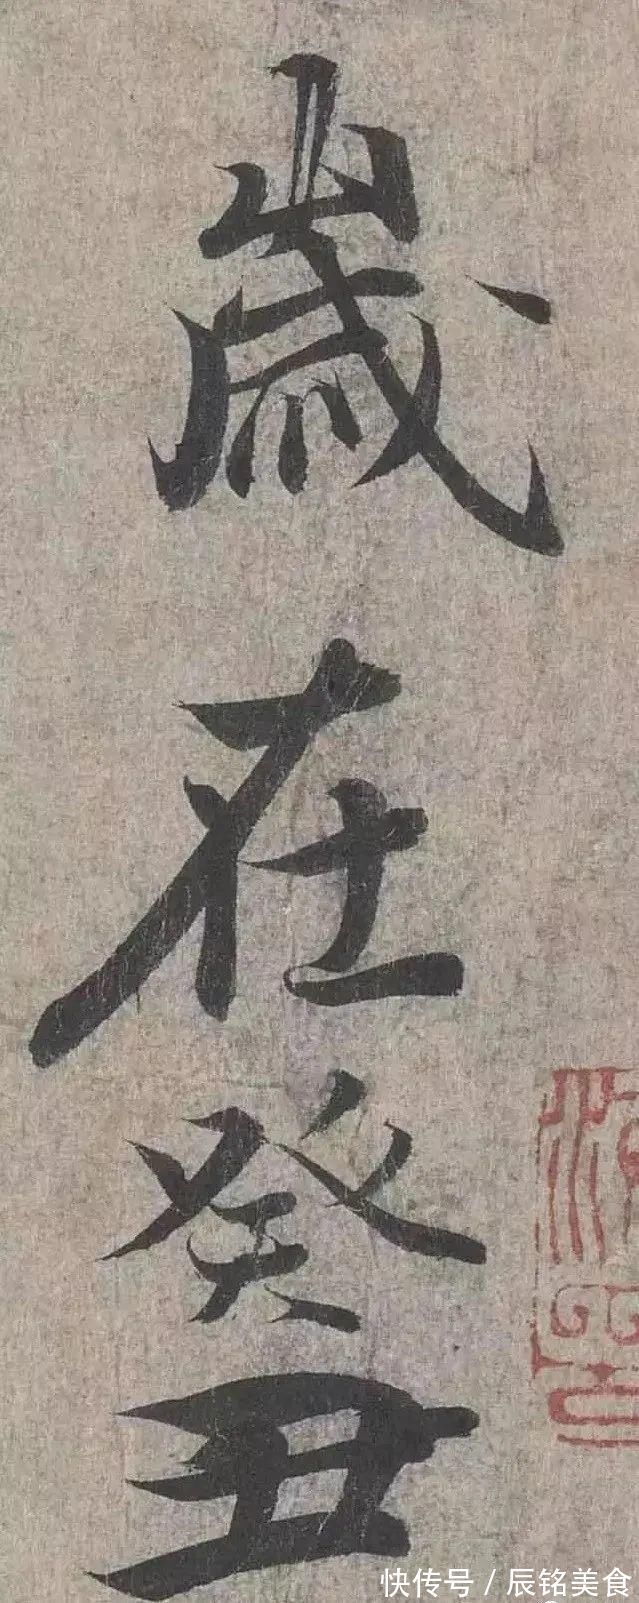 歲在癸丑
快传号 / 辰铭美食